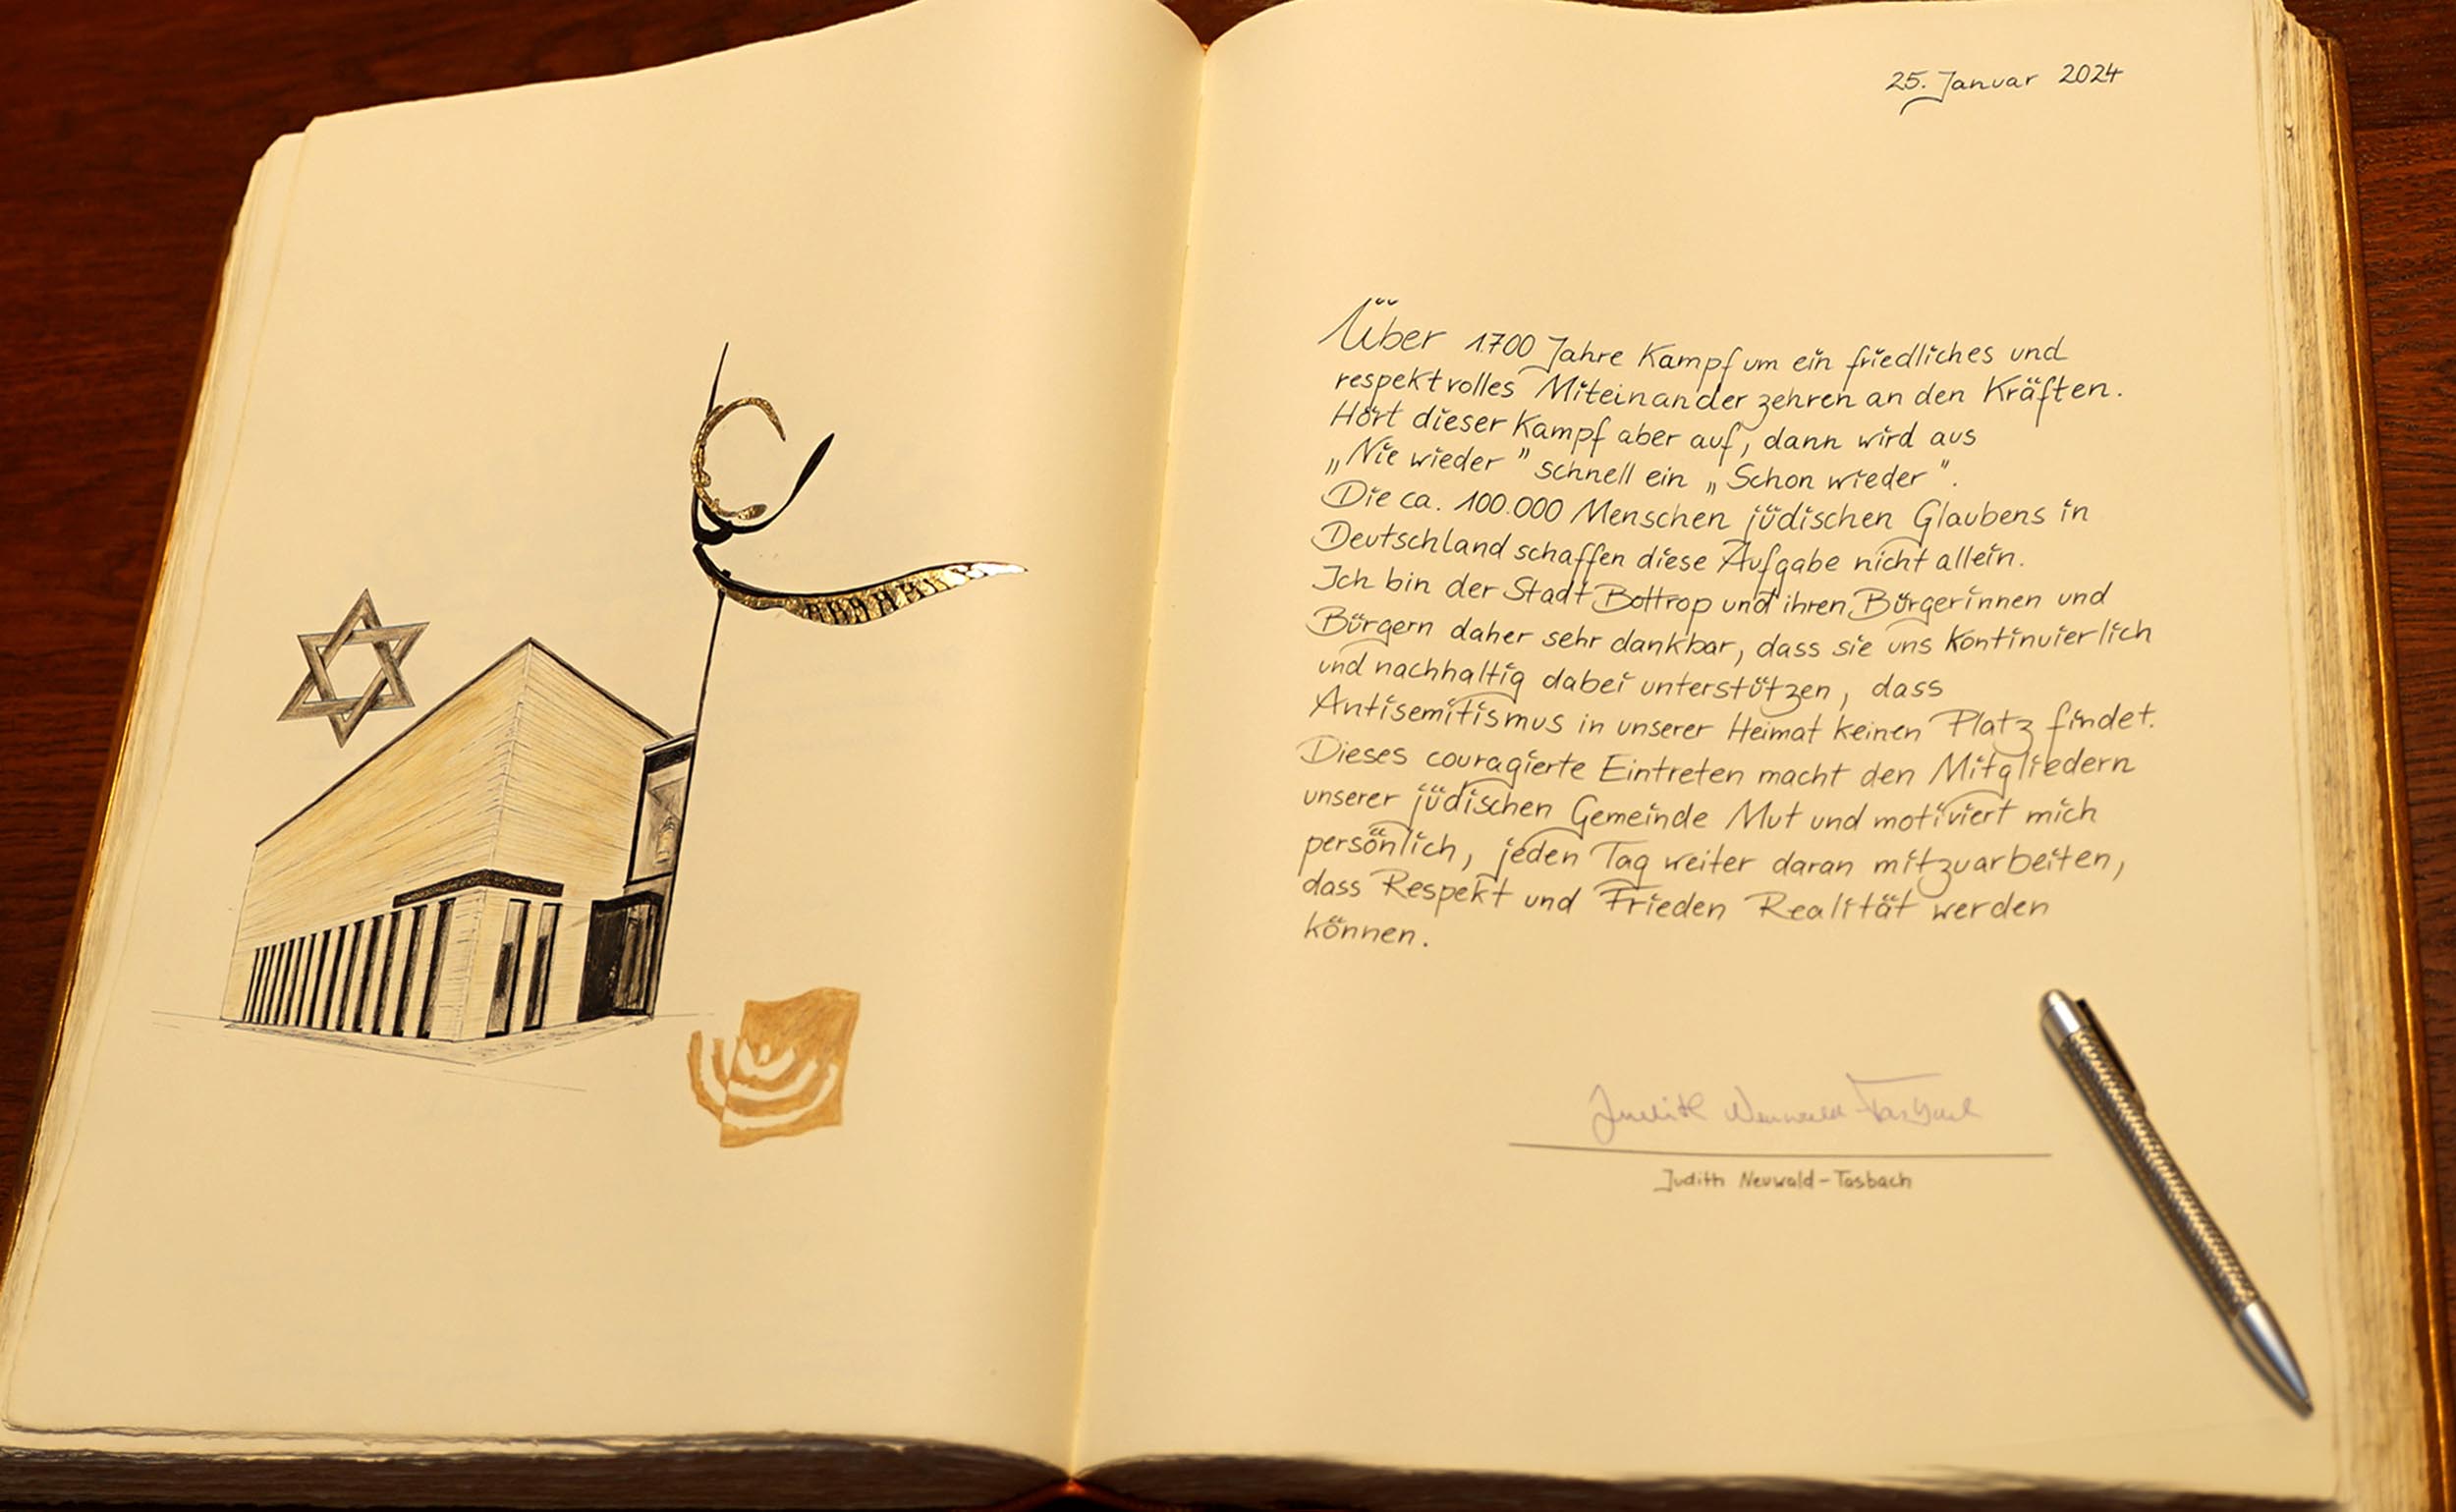 25. Januar 2024
Über 1.700 Jahre Kampf um ein friedliches und
respektvolles Miteinander zehren an den Kräften.
Hört dieser Kampf aber auf, dann wird aus
„Nie wieder" schnell ein „Schon wieder".
Die ca. 100.000 Menschen jüdischen Glaubens in
Deutschland schaffen diese Aufgabe nicht allein.
Ich bin der Stadt Bottrop und ihren Bürgerinnen und
Bürgern daher sehr dankbar, dass sie uns kontinuierlich
und nachhaltig dabei unterstützen, dass
Antisemitismus in unserer Heimat keinen Platz findet.
Dieses couragierte Eintreten macht den Mitgliedern
unserer jüdischen Gemeinde Mut und motiviert mich
persönlich, jeden Tag weiter daran mitzuarbeiten,
dass Respekt und Frieden Realität werden
können.
Judith Neuwald-Tasbach
Judith Neuwald-Tasbach